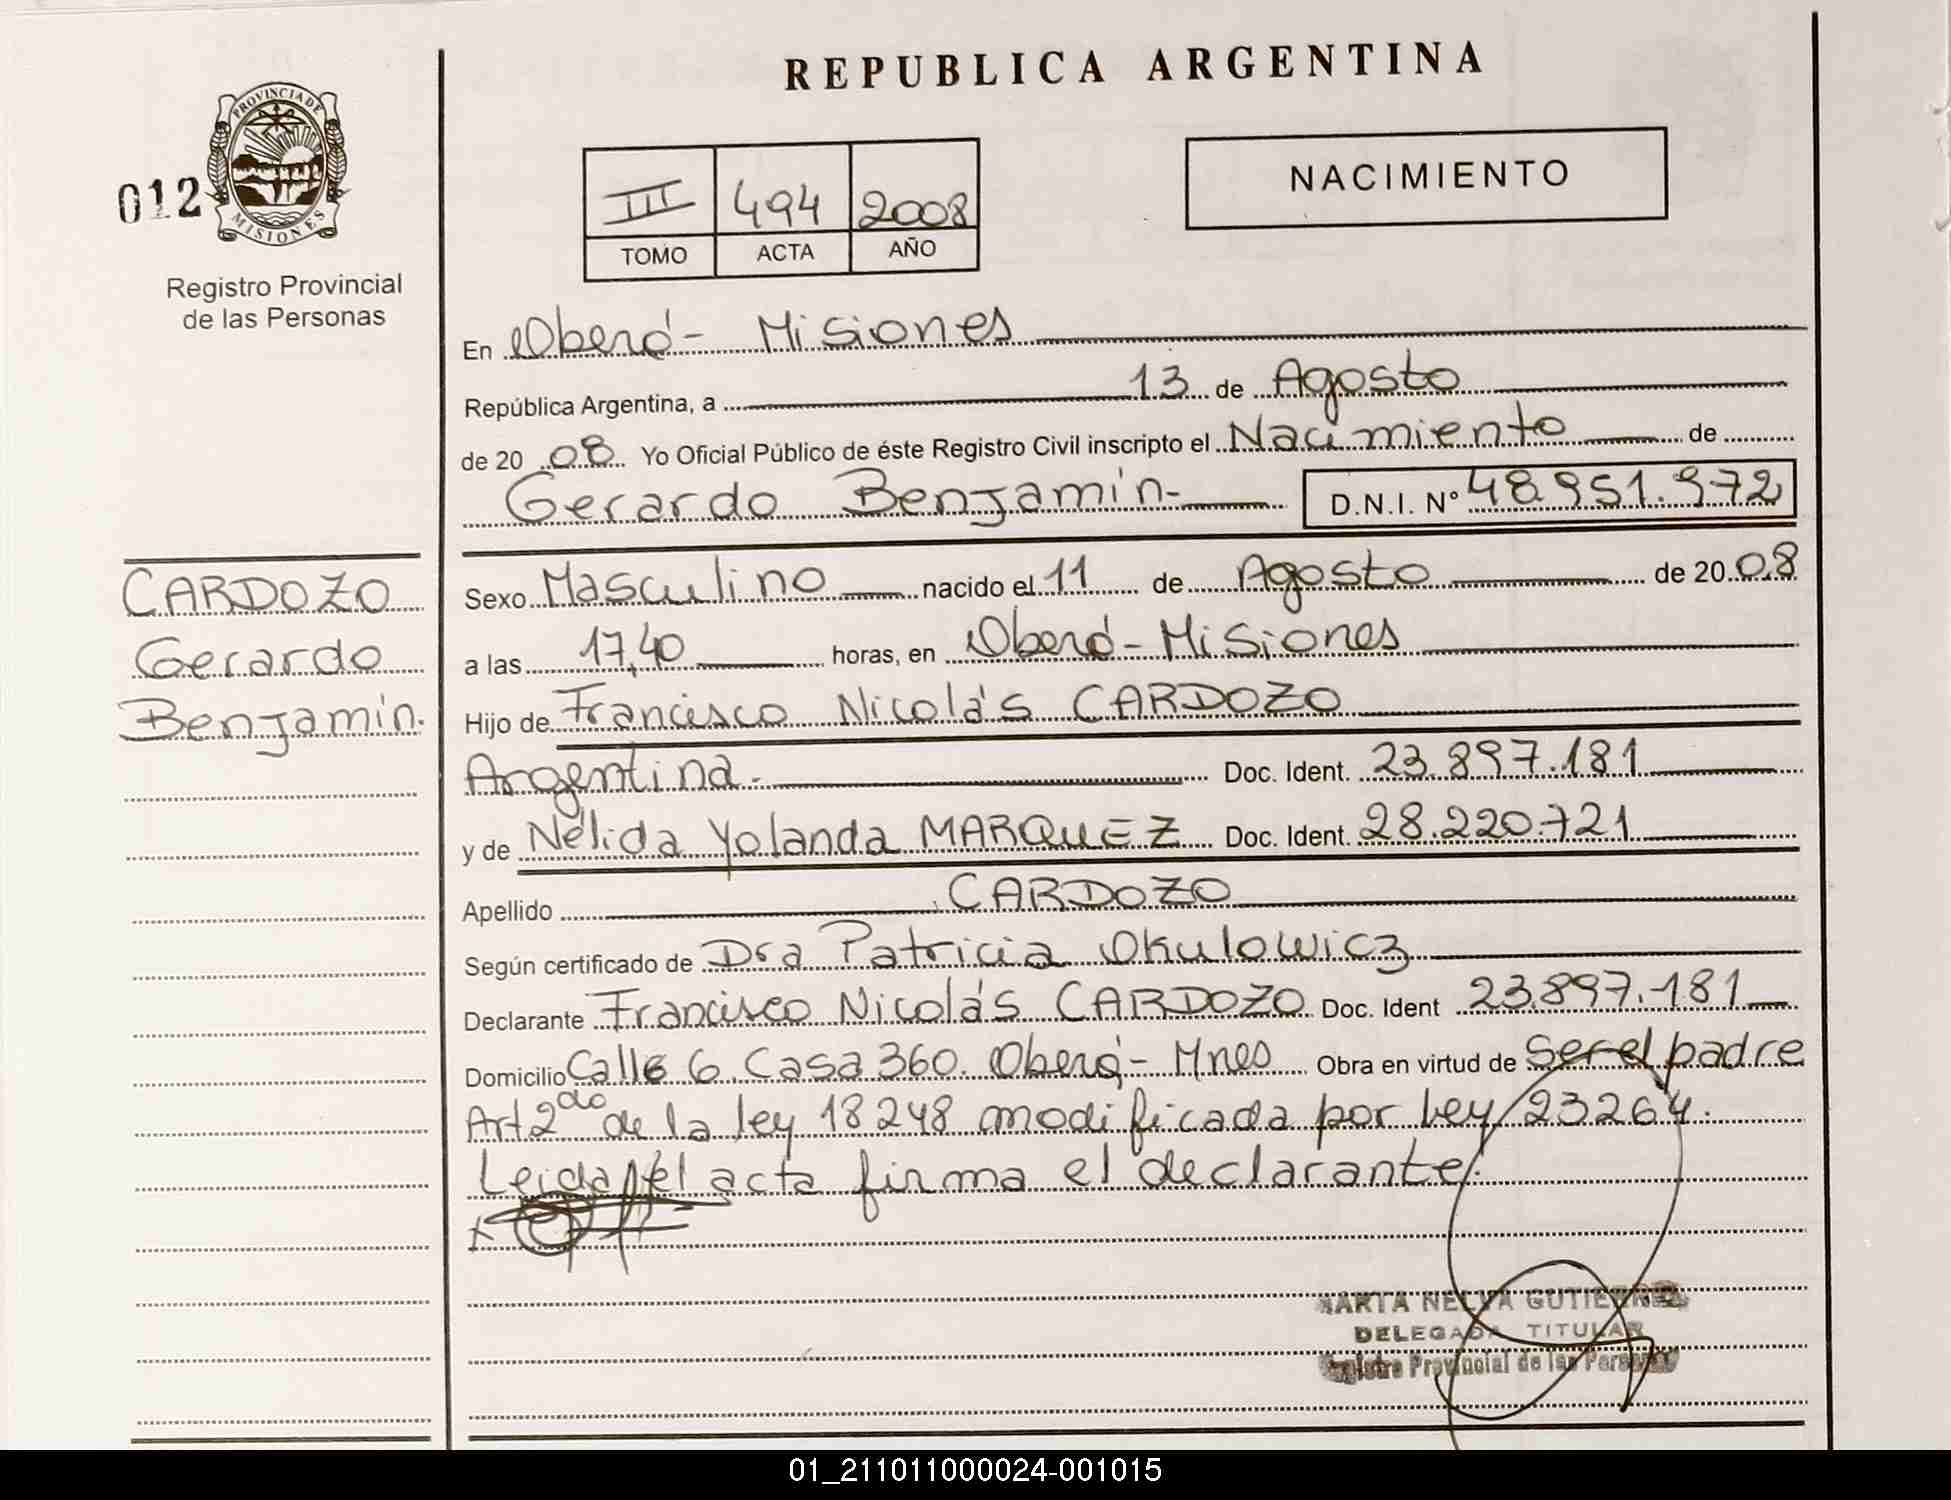 REPUBLICA ARGENTINA
PROVINCIA DE MISIONES
012
Registro Provincial
de las Personas
III 494 2008
TOMO ACTA AÑO
NACIMIENTO
En Oberá- Misiones
República Argentina, a 13 de Agosto
de 20 08 Yo Oficial Público de éste Registro Civil inscripto el Nacimiento de
Gerardo Benjamín- D.N.I. N° 48.951.972
CARDOZO
Gerardo
Benjamín.
Sexo Masculino nacido el 11 de Agosto de 20 08
a las 17,40 horas, en Oberá-Misiones
Hijo de Francisco Nicolás CARDOZO
Argentina. Doc. Ident. 23.897.181
y de Nélida Yolanda MARQUEZ Doc. Ident. 28.220.721
Apellido CARDOZO
Según certificado de Dra Patricia Okulowicz
Declarante Francisco Nicolás CARDOZO Doc. Ident 23.897.181
Domicilio Calle 6 Casa 360. Oberá- Mnes Obra en virtud de Ser el padre
Art 2do de la ley 18248 modificada por Ley 23264.
Leida el acta firma el declarante.
MARTA NELVA GUTIERREZ
DELEGADA TITULAR
Registro Provincial de las Personas
01_211011000024-001015